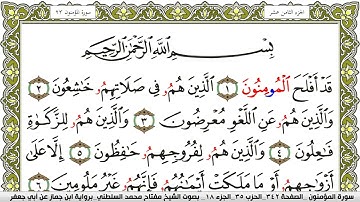 الجزء الثامن عشر
سورة المؤمنون ٢٣
بِسْمِ اللَّهِ الرَّحْمَٰنِ الرَّحِيمِ
قَدْ أَفْلَحَ الْمُومِنُونَ ١ الَّذِينَ هُمُ فِي صَلَاتِهِمُ خَاشِعُونَ ٢
وَالَّذِينَ هُمُ عَنِ اللَّغْوِ مُعْرِضُونَ ٣ وَالَّذِينَ هُمُ لِلزَّكَوٰةِ
فَاعِلُونَ ٤ وَالَّذِينَ هُمُ لِفُرُوجِهِمُ حَافِظُونَ ٥ إِلَّا عَلَىٰ
أَزْوَاجِهِمُ أَوْ مَا مَلَكَتْ أَيْمَانُهُمُ فَإِنَّهُمُ غَيْرُ مَلُومِينَ ٦
سورة المؤمنون . الصفحة ٣٤٢ الحزب ٣٥ الجزء ١٨ بصوت الشيخ مفتاح محمد السلطني برواية ابن جماز عن أبي جعفر